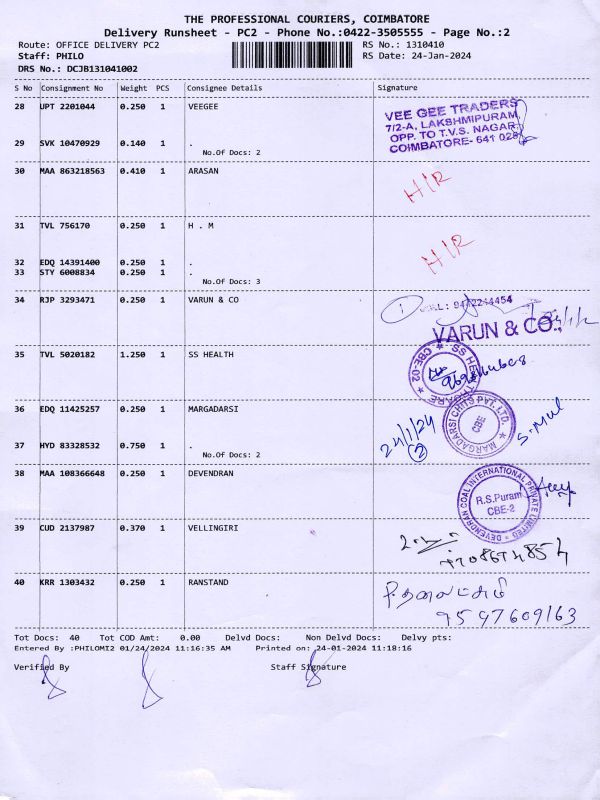 THE PROFESSIONAL COURIERS, COIMBATORE
Delivery Runsheet - PC2 - Phone No.:0422-3505555 - Page No.:2
Route: OFFICE DELIVERY PC2 RS No.: 1310410
Staff: PHILO RS Date: 24-Jan-2024
DRS No.: DCJB131041002
S No Consignment No Weight PCS Consignee Details Signature
28 UPT 2201044 0.250 1 VEEGEE
VEE GEE TRADERS
7/2-A, LAKSHMIPURAM
OPP. TO T.V.S. NAGAR
COIMBATORE- 641 025
29 SVK 10470929 0.140 1 .
No.Of Docs: 2
30 MAA 863218563 0.410 1 ARASAN
H/R
31 TVL 756170 0.250 1 H . M
H/R
32 EDQ 14391400 0.250 1 .
33 STY 6008834 0.250 1 .
No.Of Docs: 3
34 RJP 3293471 0.250 1 VARUN & CO
1
VARUN & CO.,
35 TVL 5020182 1.250 1 SS HEALTH
CBE-02
36 EDQ 11425257 0.250 1 MARGADARSI
MARGADARSI CHITS PVT.LTD.
CBE
24/1/24
2
37 HYD 83328532 0.750 1 .
No.Of Docs: 2
38 MAA 108366648 0.250 1 DEVENDRAN
DEVENDRAN COAL INTERNATIONAL PRIVATE LIMITED
R.S.Puram
CBE-2
39 CUD 2137987 0.370 1 VELLINGIRI
40 KRR 1303432 0.250 1 RANSTAND
9597609163
Tot Docs: 40 Tot COD Amt: 0.00 Delvd Docs: Non Delvd Docs: Delvy pts:
Entered By :PHILOMI2 01/24/2024 11:16:35 AM Printed on: 24-01-2024 11:18:16
Verified By Staff Signature